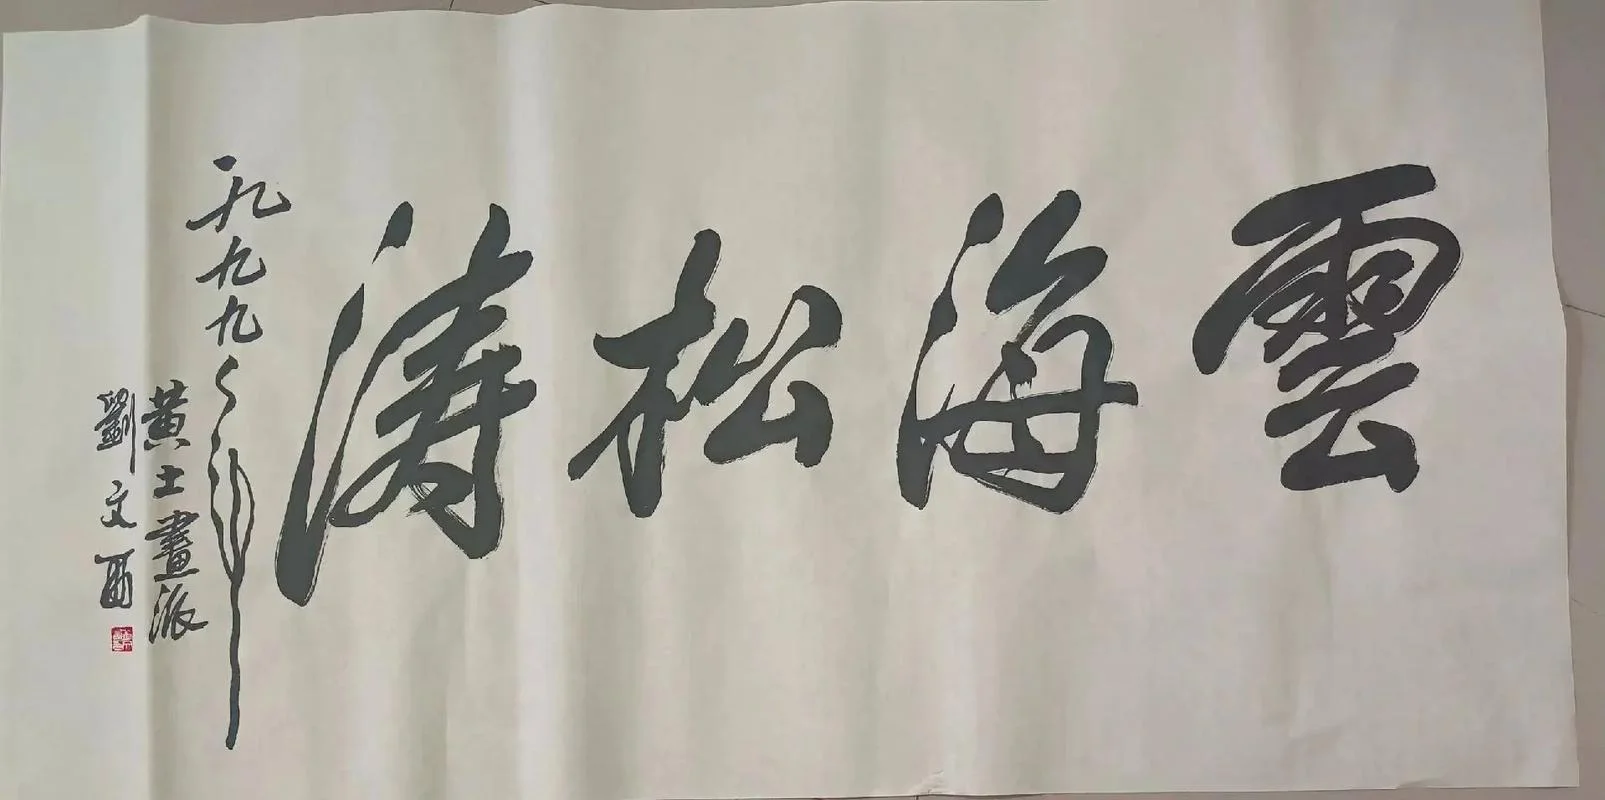 雲海松濤
一九九九年
黄土畫派
劉文西